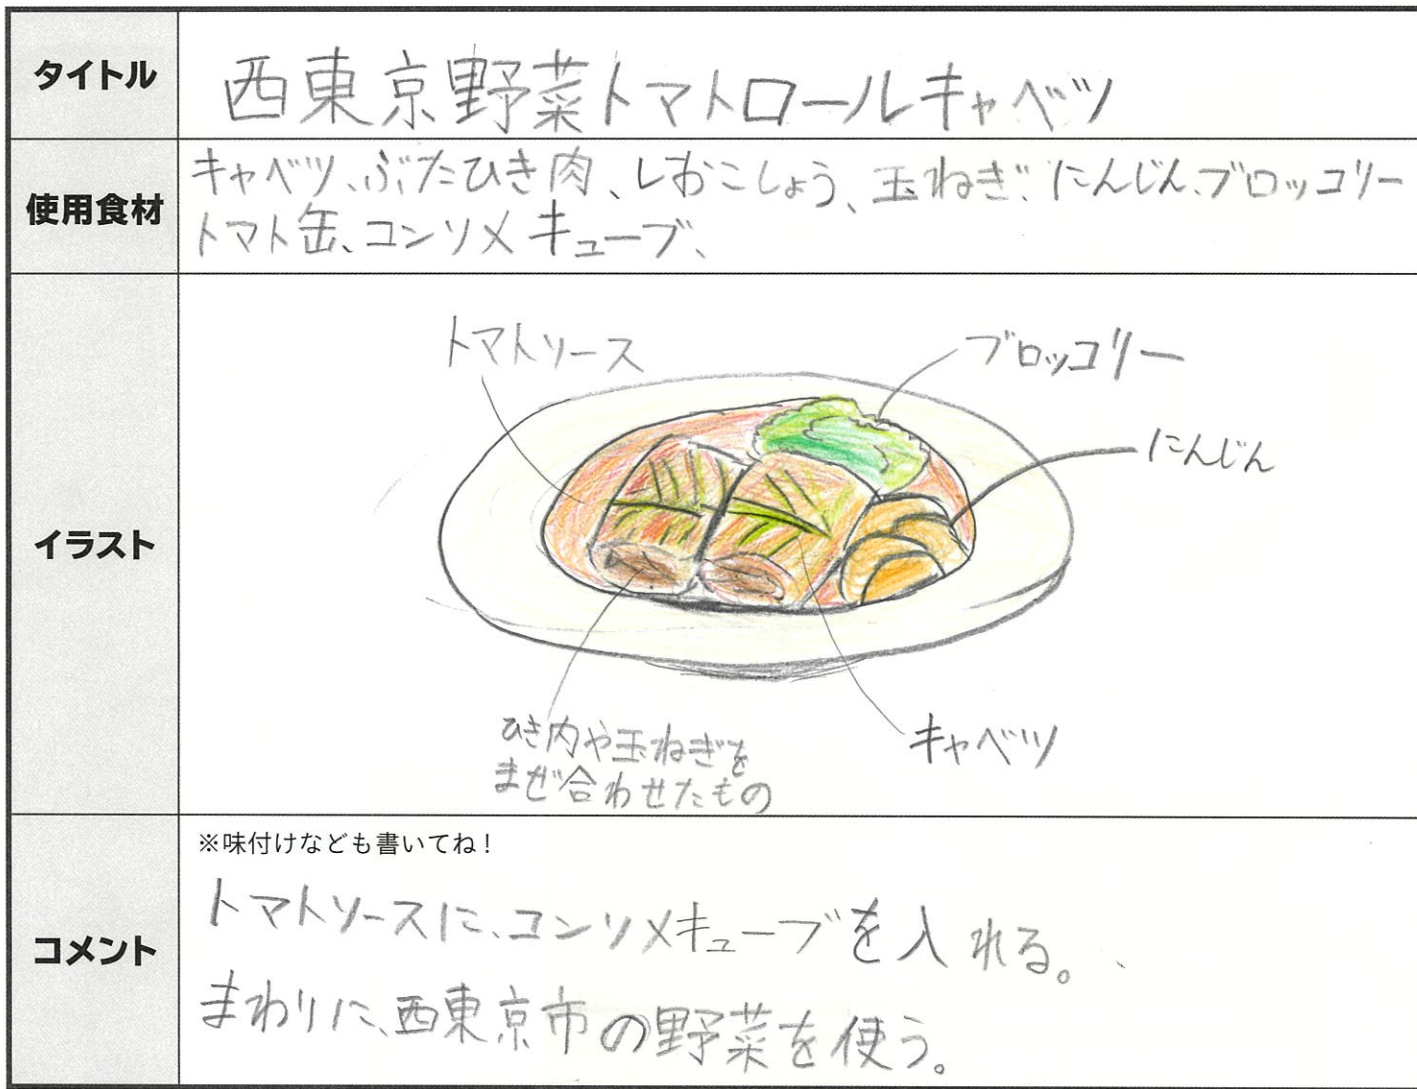 タイトル
西東京野菜トマトロールキャベツ
使用食材
キャベツ、ぶたひき肉、しおこしょう、玉ねぎ、にんじん、ブロッコリー
トマト缶、コンソメキューブ、
イラスト
トマトソース
ブロッコリー
にんじん
ひき肉や玉ねぎを
まぜ合わせたもの
キャベツ
コメント
※味付けなども書いてね!
トマトソースに、コンソメキューブを入れる。
まわりに、西東京市の野菜を使う。